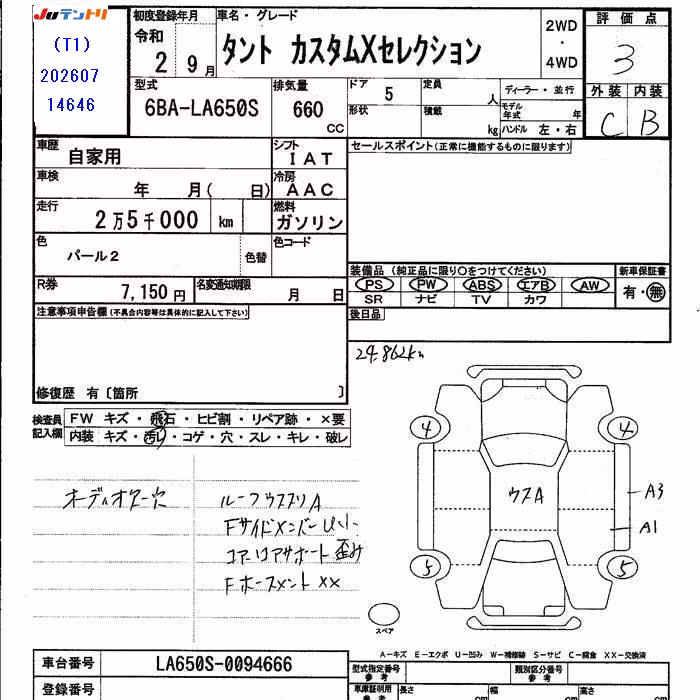 JUテントリ
(T1)
202607
14646
初度登録年月
令和
2 9月
車名・グレード
タント カスタムXセレクション
2WD
・
4WD
評価点
3
外装 内装
C B
型式
6BA-LA650S
排気量
660
CC
ドア
5
形状
定員
人
積載
kg
ディーラー・並行
モデル年式 年
ハンドル 左・右
車歴
自家用
シフト
IAT
車検
年 月( 日)
冷房
AAC
走行
2万5千000 km
燃料
ガソリン
色
パール2
色替
色コード
R券
7,150円
名変通知期限
月 日
セールスポイント(正常に機能するものに限ります)
装備品 (純正品に限り○をつけてください)
PS PW ABS エアB AW
SR ナビ TV カワ
新車保証書
有・無
後日品
注意事項申告欄(不具合内容等は具体的に記入して下さい)
修復歴 有〔箇所 〕
24,862km
検査員記入欄
FW キズ・飛石・ヒビ割・リペア跡・×要
内装 キズ・汚レ・コゲ・穴・スレ・キレ・破レ
ルーフウスブリA
Fサイドメンバー
コアロアサポート歪み
Fホースメント××
4 4
ウスA
A3
A1
5 5
スペア
A-キズ E-エクボ U-凹み W-補修跡 S-サビ C-腐食 XX-交換済
車台番号
LA650S-0094666
登録番号
型式指定番号
参考
類別区分番号
参考
車庫証明用
参考
長さ cm
幅 cm
高さ cm